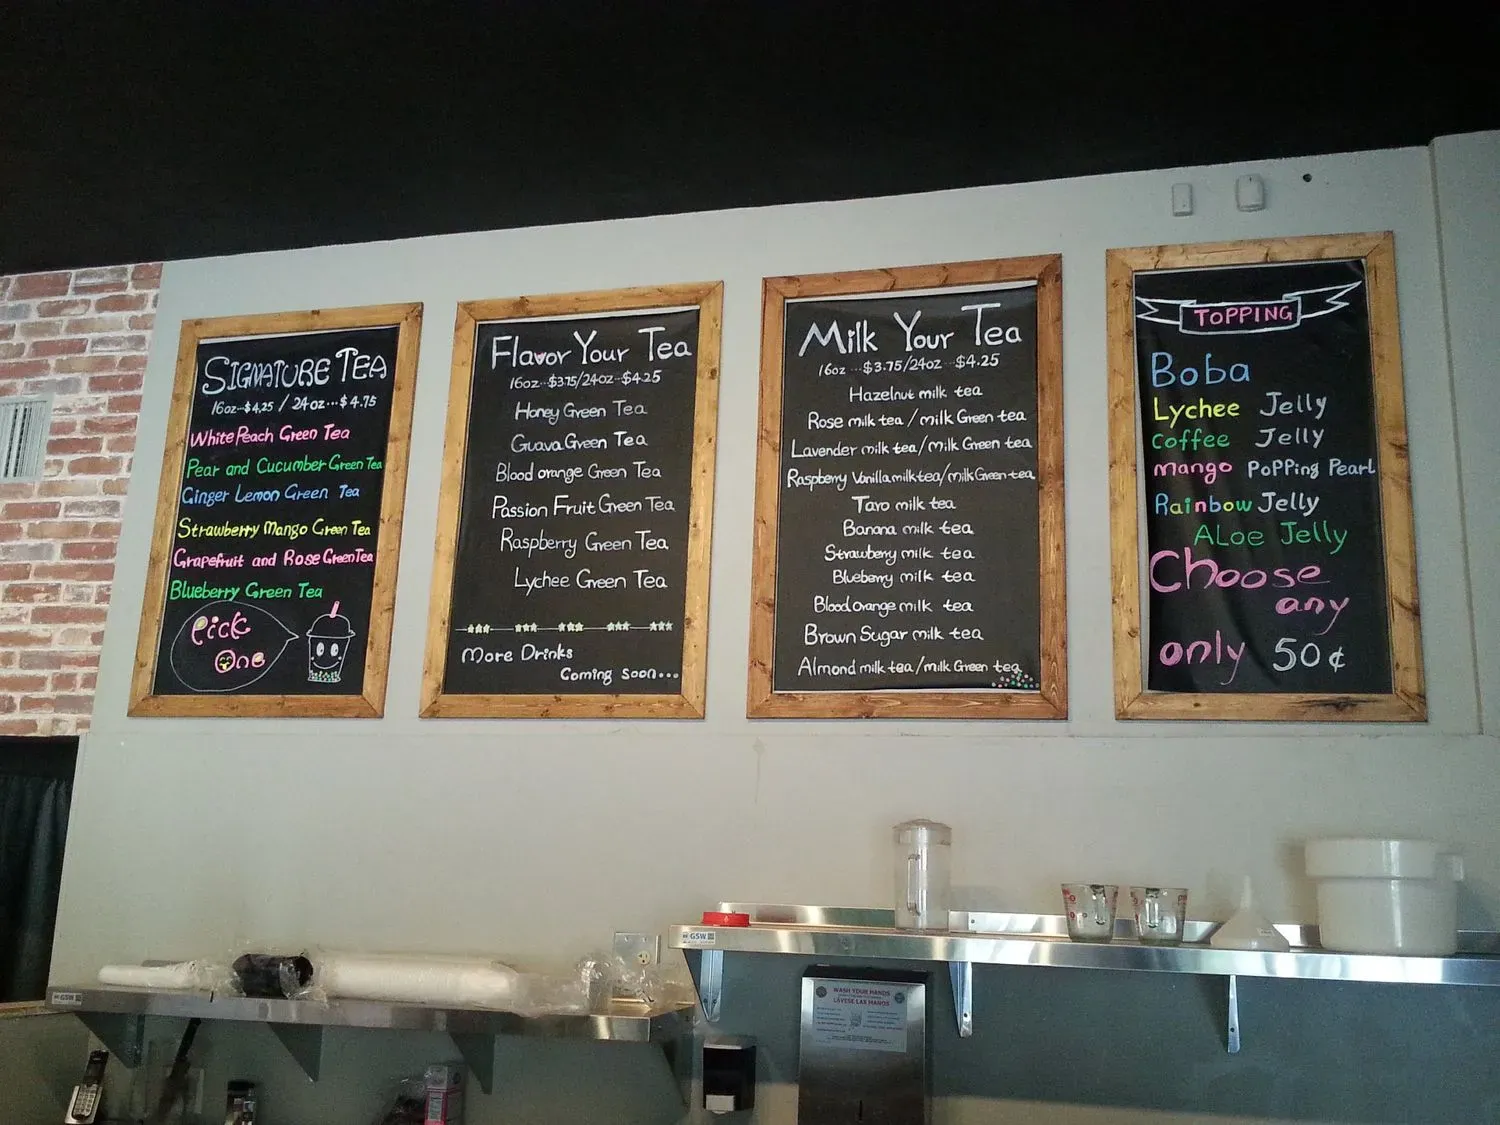 SIGNATURE TEA
16oz--$4.25 / 24oz---$4.75
White Peach Green Tea
Pear and Cucumber Green Tea
Ginger Lemon Green Tea
Strawberry Mango Green Tea
Grapefruit and Rose Green Tea
Blueberry Green Tea
Pick
One
Flavor Your Tea
16oz--$3.75/24oz--$4.25
Honey Green Tea
Guava Green Tea
Blood orange Green Tea
Passion Fruit Green Tea
Raspberry Green Tea
Lychee Green Tea
More Drinks
Coming soon...
Milk Your Tea
16oz---$3.75/24oz--$4.25
Hazelnut milk tea
Rose milk tea / milk Green tea
Lavender milk tea/milk Green tea
Raspberry Vanilla milk tea/milk Green tea
Taro milk tea
Banana milk tea
Strawberry milk tea
Blueberry milk tea
Blood orange milk tea
Brown Sugar milk tea
Almond milk tea/milk Green tea
TOPPING
Boba
Lychee Jelly
Coffee Jelly
Mango PoPPing Pearl
Rainbow Jelly
ALoe Jelly
Choose
any
only 50¢
GSW
GSW
WASH YOUR HANDS
LAVESE LAS MANOS